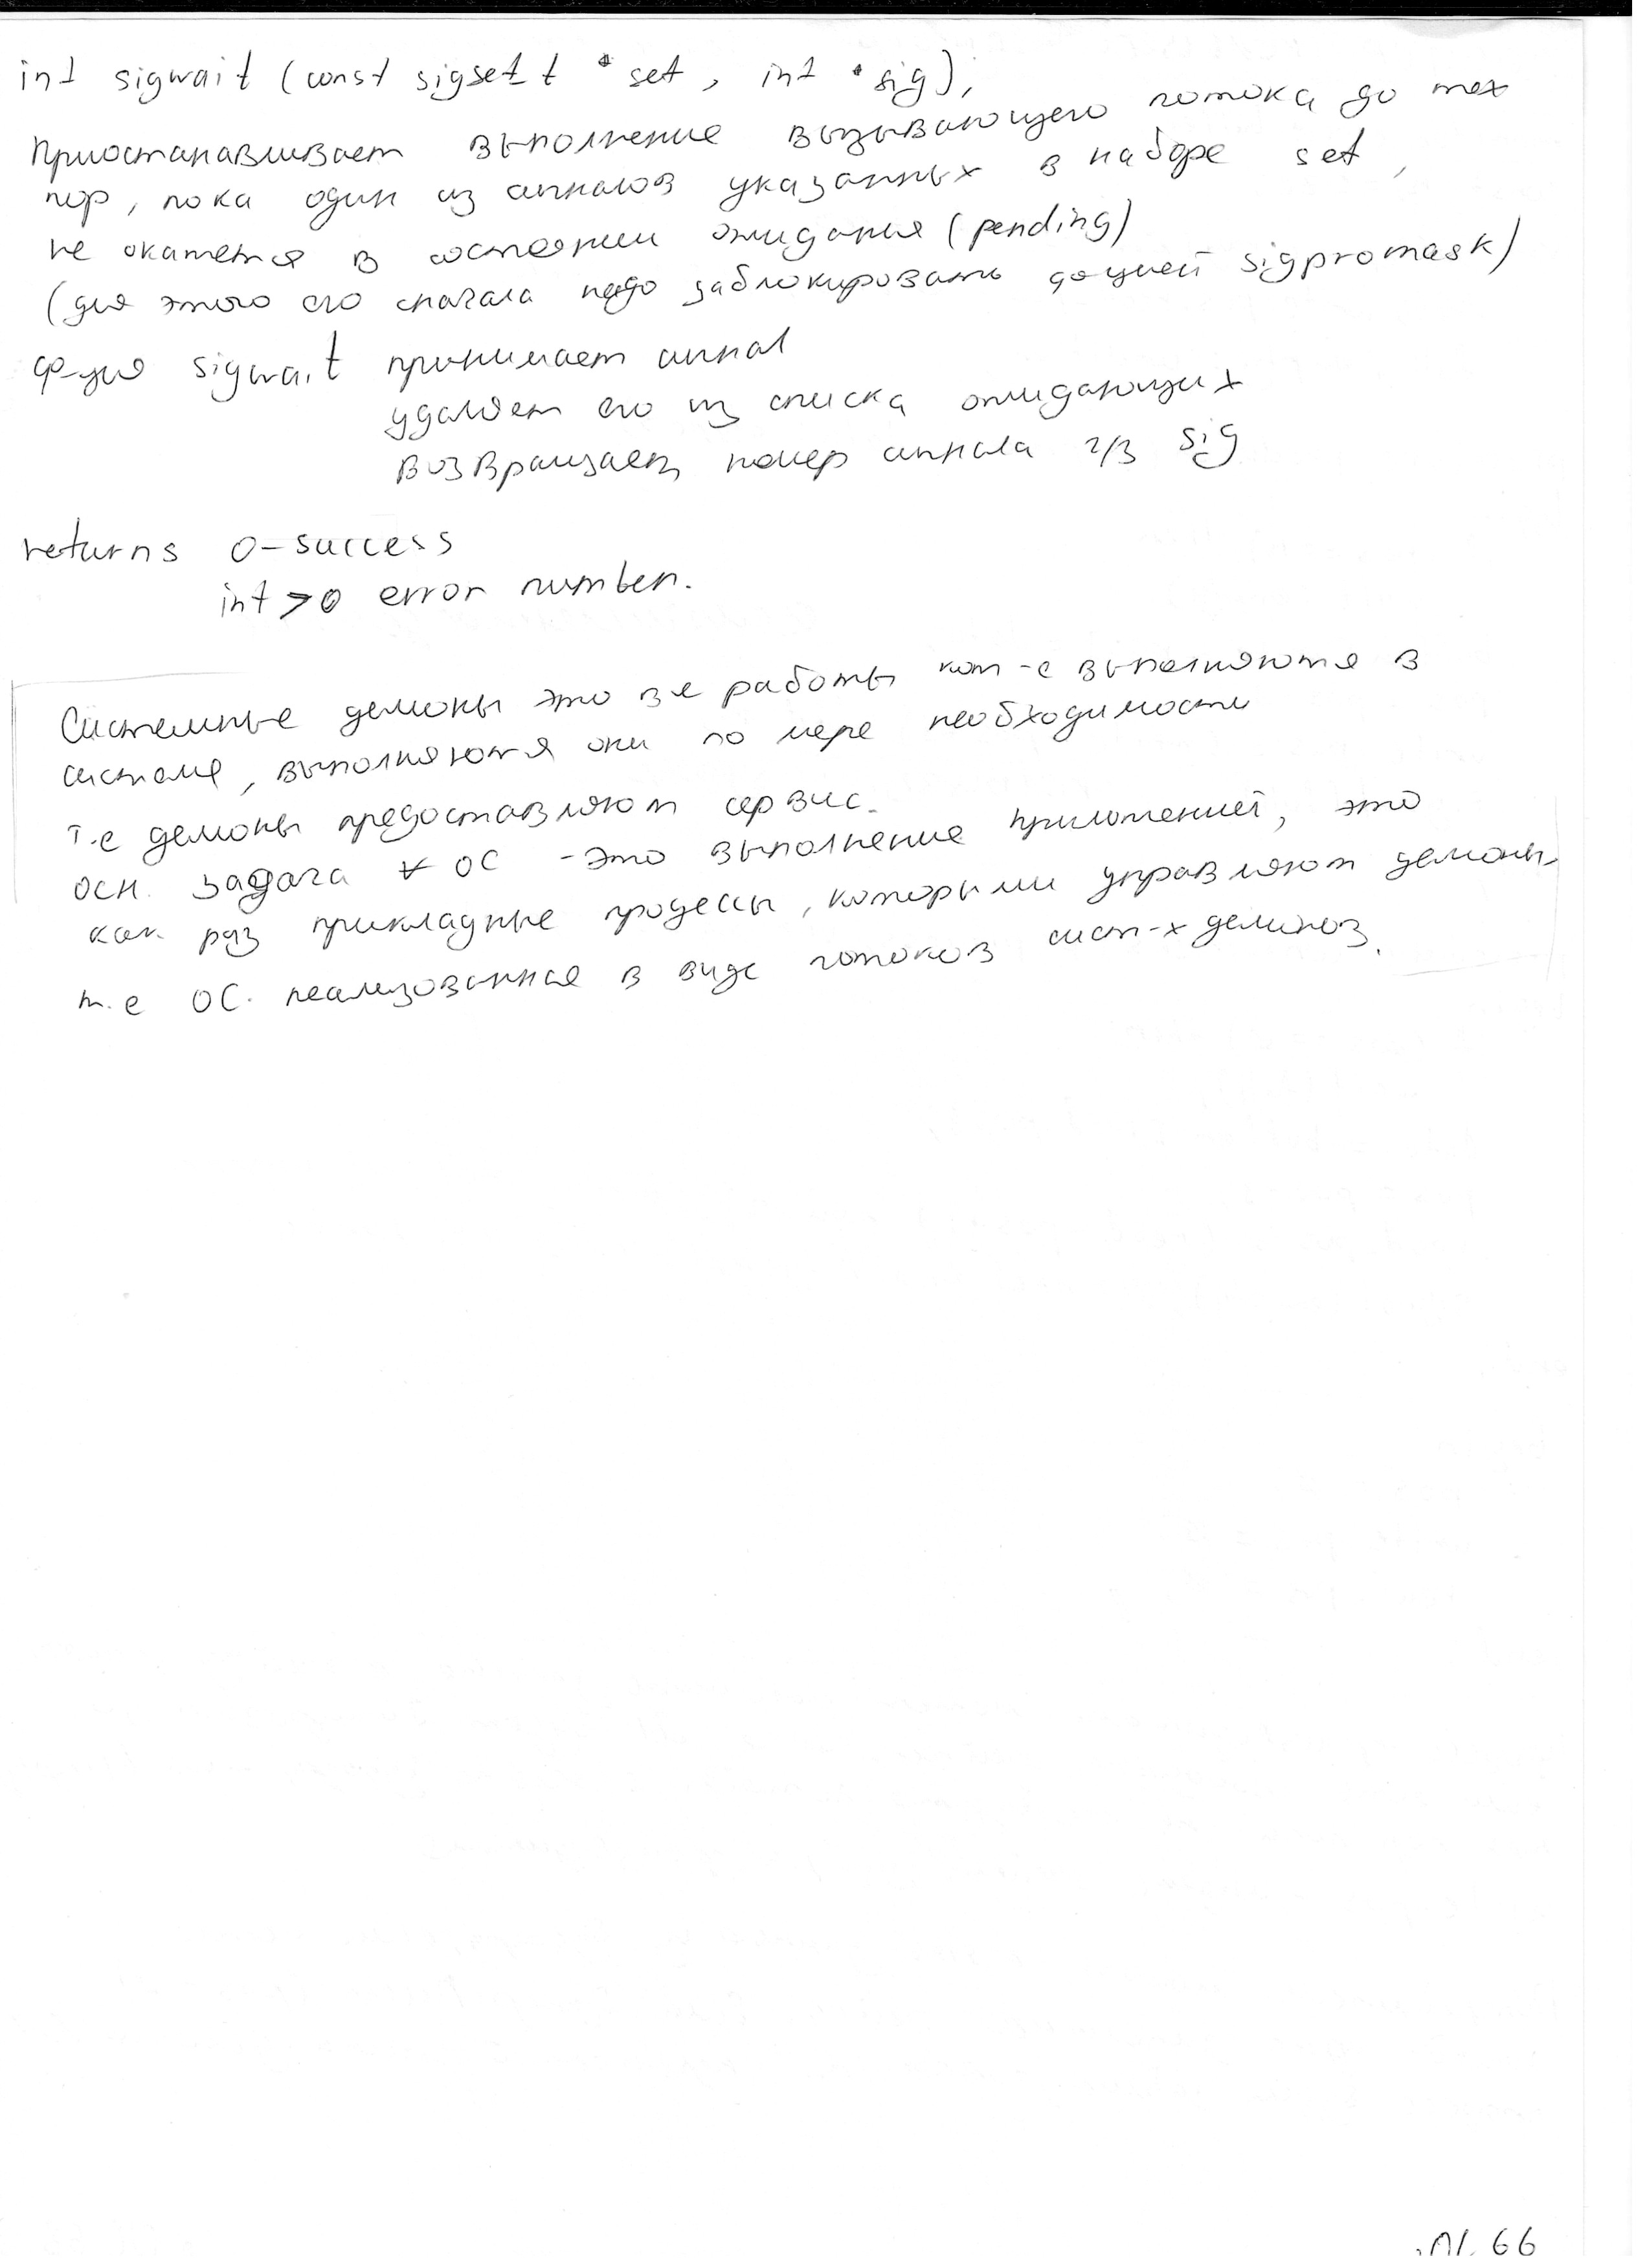 int sigwait (const sigset t * set , int * sig);
приостанавливает выполнение вызывающего потока до тех
пор, пока один из сигналов указанных в наборе set ,
не окажется в состоянии ожидания (pending)
(для этого его сначала надо заблокировать ф-цией sigpromask)
ф-ция sigwait принимает сигнал
удаляет его из списка ожидающих
возвращает номер сигнала ч/з sig
returns 0 - success
int > 0 error number.
Системные демоны это все работы кот-е выполняются в
системе, выполняются они по мере необходимости
т.е демоны предоставляют сервис.
осн. задача ∀ ОС - это выполнение приложений, это
как раз прикладные процессы, которыми управляют демоны,
т.е ОС. реализованная в виде потоков сист-х демонов.
66